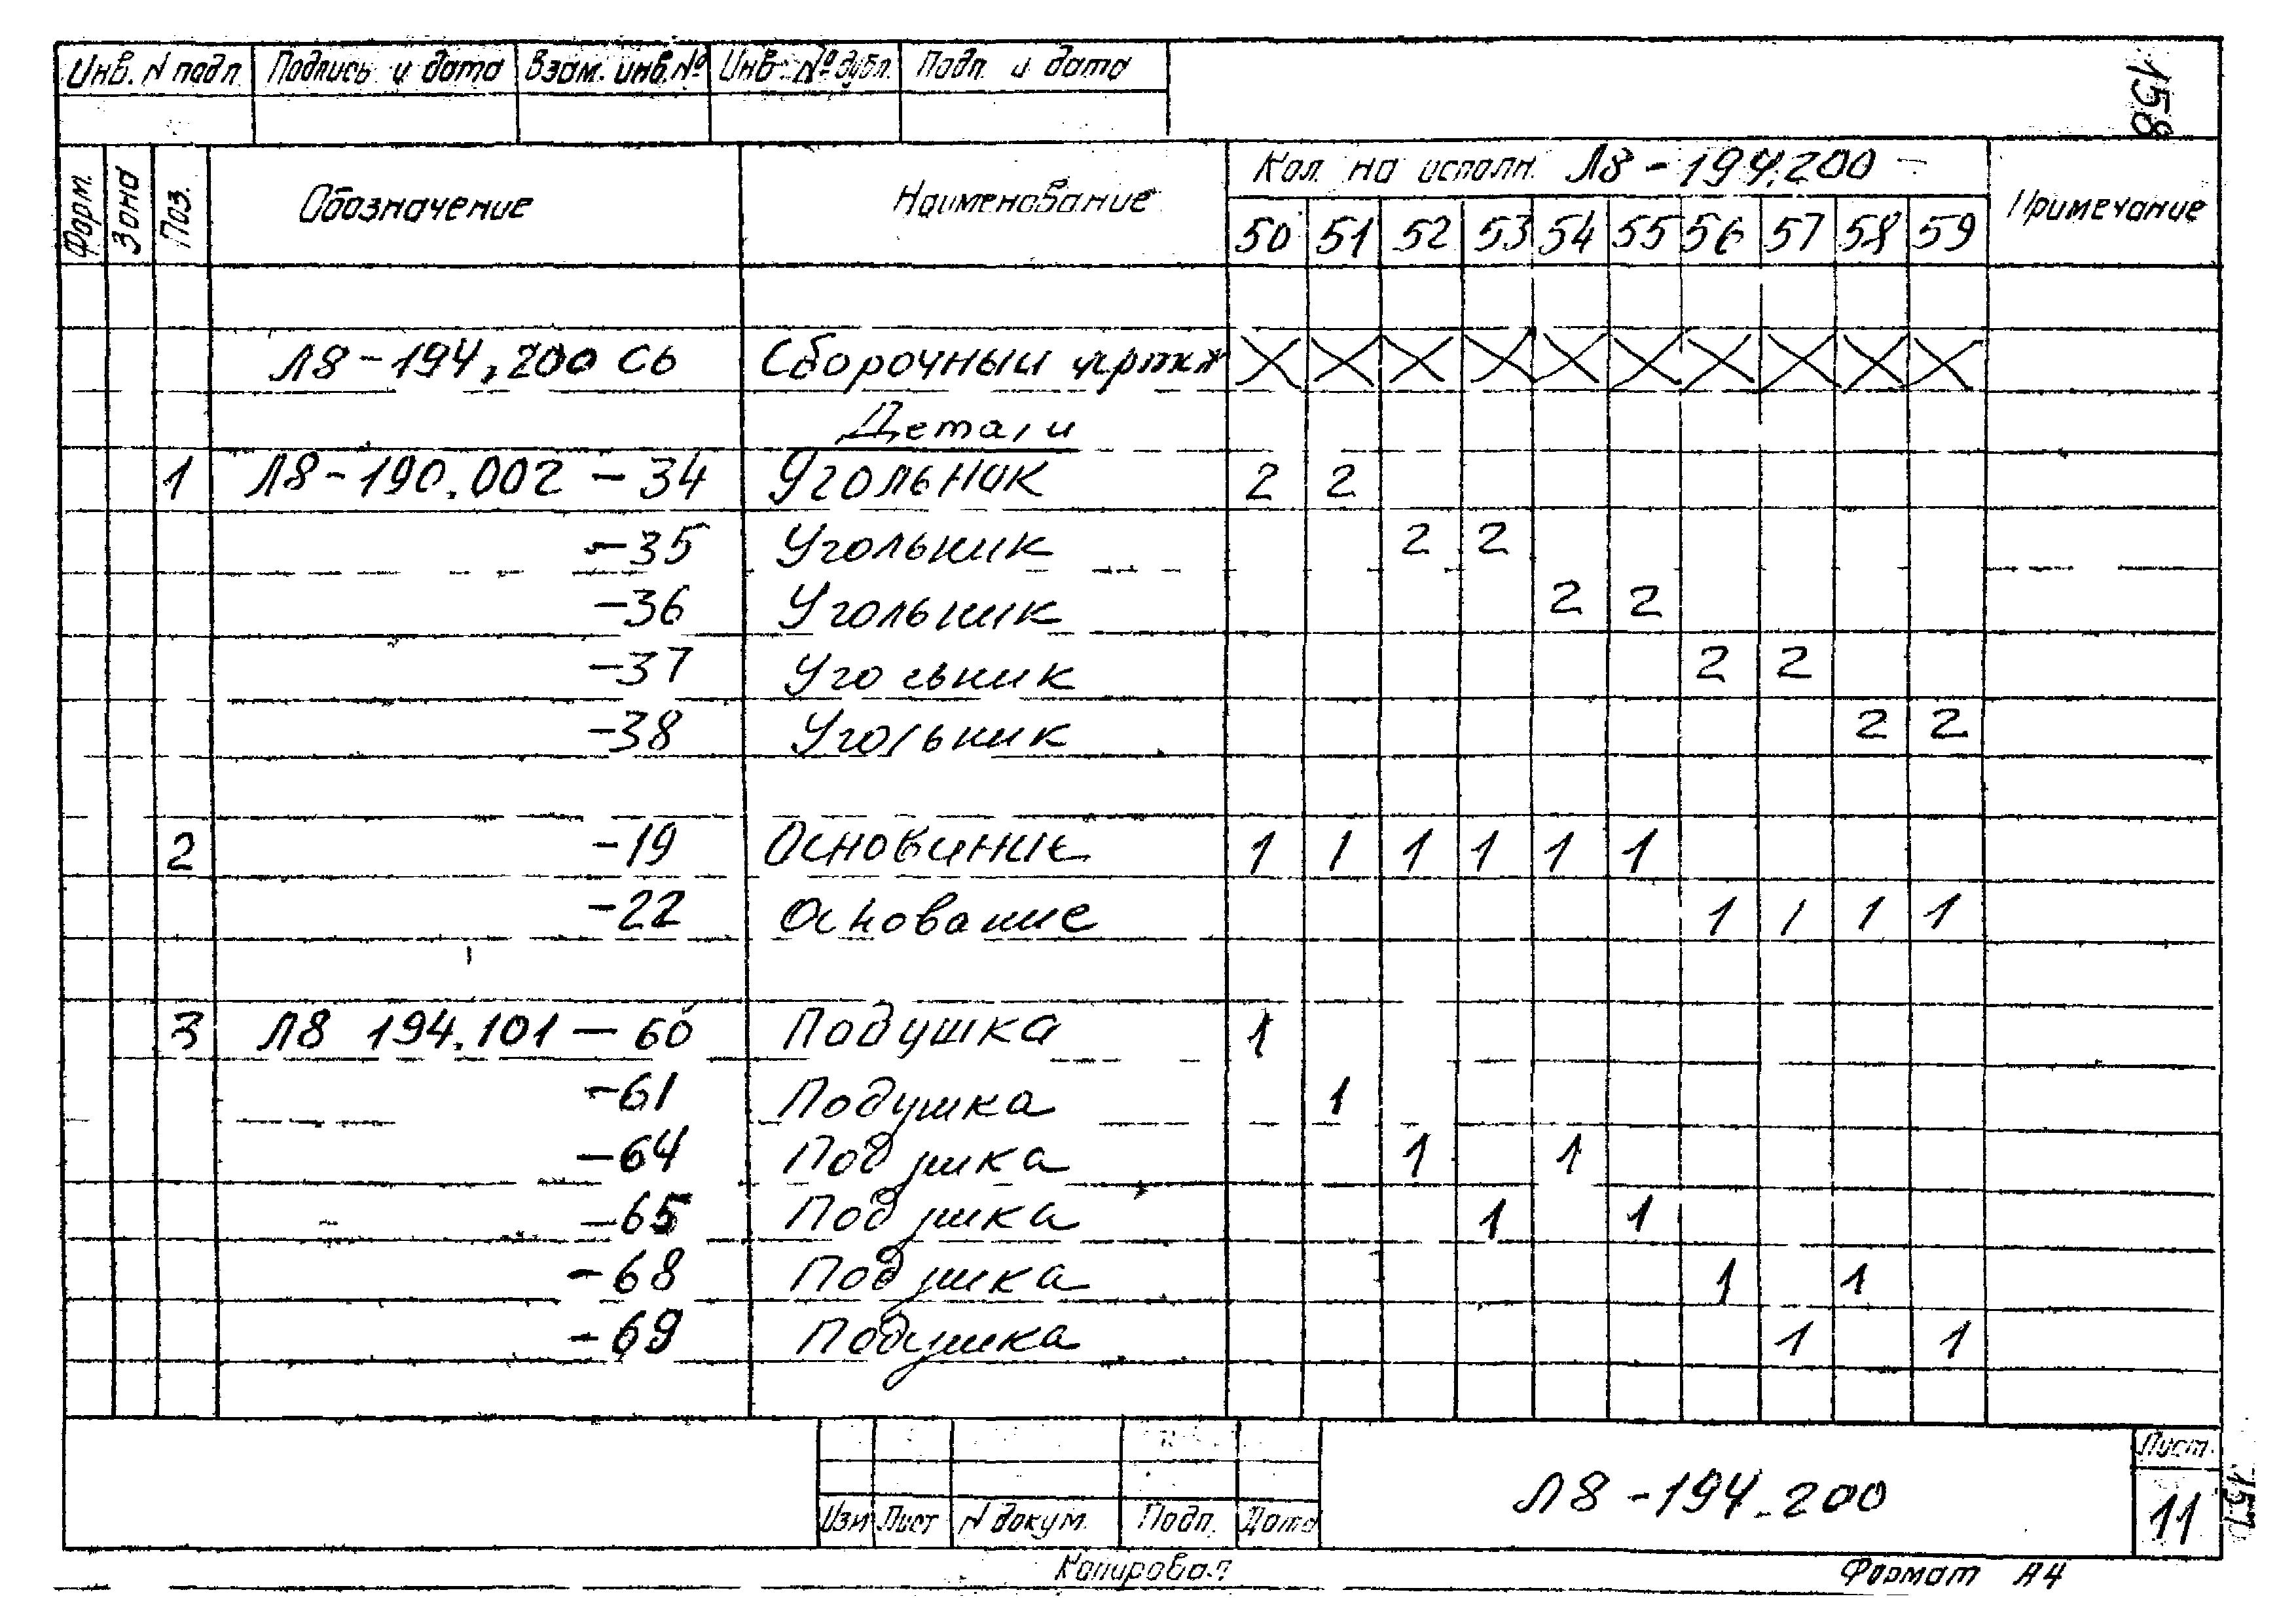 Инв. N подл. Подпись и дата Взам. инв. № Инв. № дубл. Подп. и дата
158
Форм. Зона Поз. Обозначение Наименование Кол. на исполн. Л8-194.200- Примечание
50 51 52 53 54 55 56 57 58 59
Л8-194.200 СБ Сборочный X X X X X X X X X X
Детали
1 Л8-190.002-34 Угольник 2 2
-35 Угольник 2 2
-36 Угольник 2 2
-37 Угольник 2 2
-38 Угольник 2 2
2 -19 Основание 1 1 1 1 1 1
-22 Основание 1 1 1 1
3 Л8 194.101-60 Подушка 1
-61 Подушка 1
-64 Подушка 1 1
-65 Подушка 1 1
-68 Подушка 1 1
-69 Подушка 1 1
Изм Лист N докум. Подп. Дата
Л8-194.200
Лист
11
Копировал
Формат А4